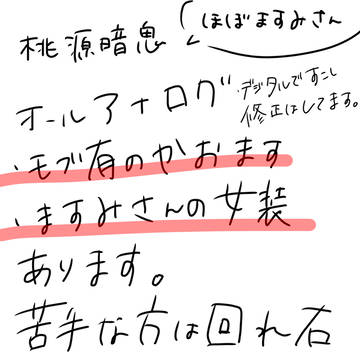 ほぼますみさん
桃源暗息
オールアナログ
・デジタルですこし
修正はしてます。
・モブ有のかおます
・ますみさんの女装
あります。
苦手な方は回れ右